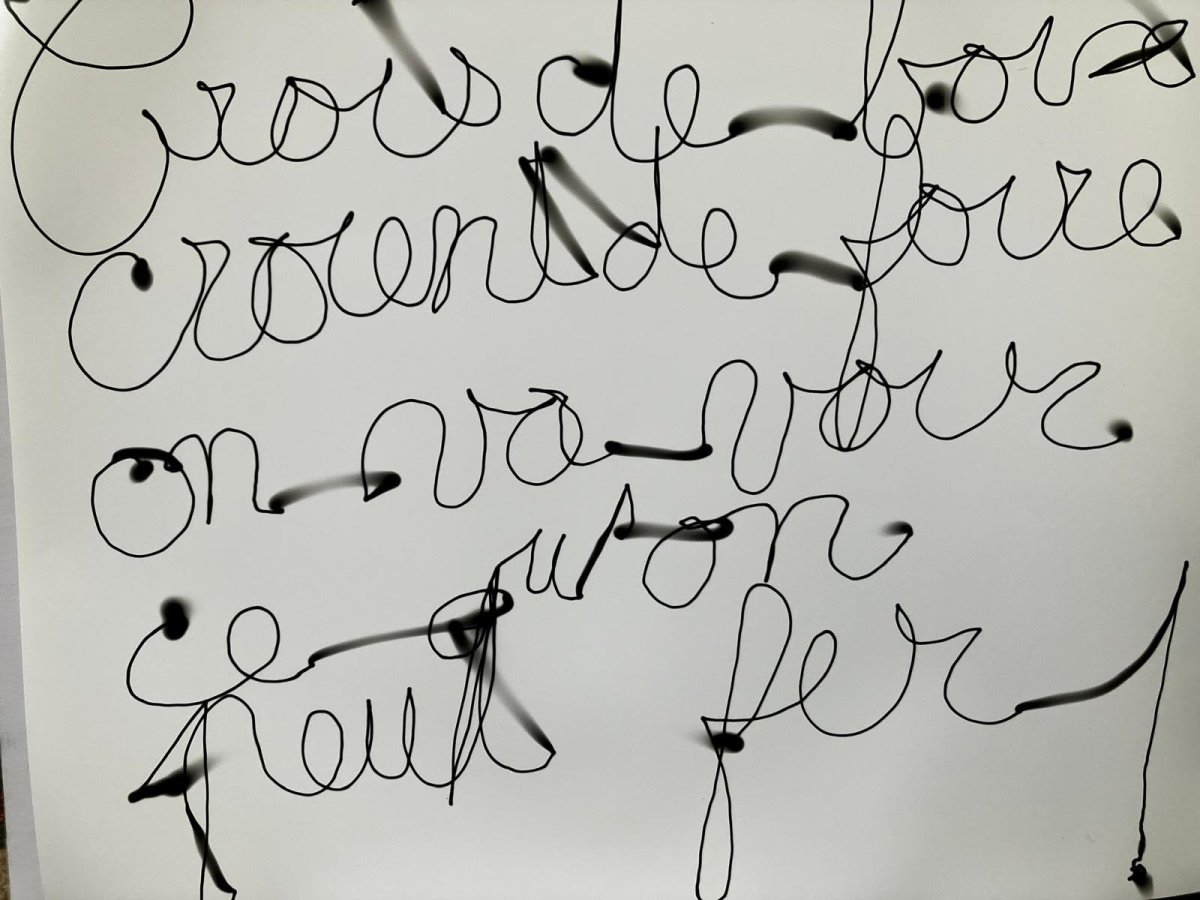 Crois de fois
croient de foire
on va voir
ce qu'on
peut fer